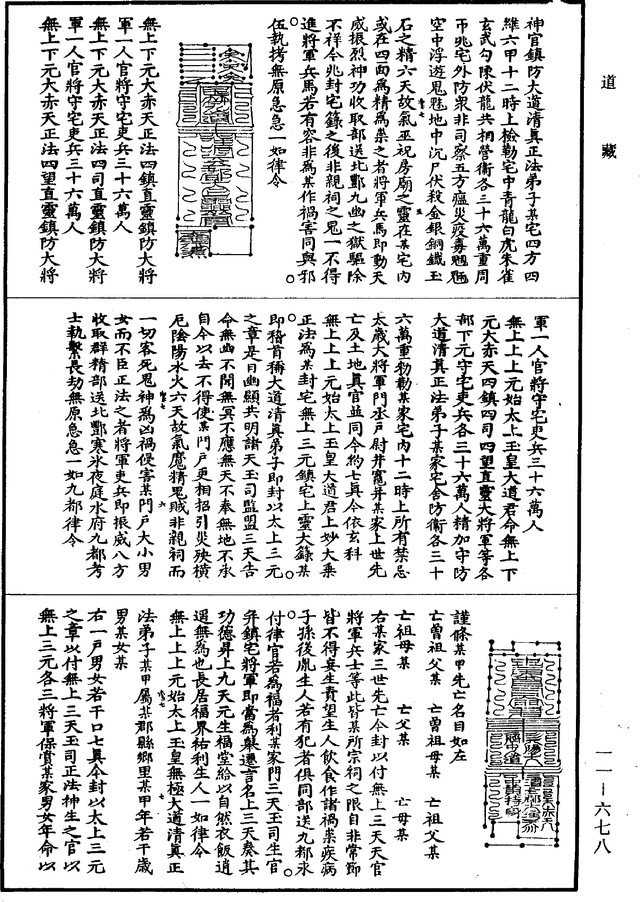 道藏
神官鎮防大道清真正法弟子某宅四方四
維六甲十二時上檢勒宅中青龍白虎朱雀
玄武勾陳伏龍共相營衛各三十六萬重周
帀兆宅外防衆非司察五方瘟災疫毒魍魎
空中浮遊鬼魅地中沉尸伏殺金銀銅鐵玉
石之精六天故氣巫祝房廟之靈在某宅內
或在四面爲精爲祟之者將軍兵馬即動天
威振烈神功收取部送北酆九幽之獄驅除
不祥令兆封宅錄之後非親祠之鬼一不得
進將軍兵馬若有容非爲某作禍害同與邪
伍執拷無原急急一如律令
無上下元大赤天正法四鎮直靈鎮防大將
軍一人官將守宅吏兵三十六萬人
無上下元大赤天正法四司直靈鎮防大將
軍一人官將守宅吏兵三十六萬人
無上下元大赤天正法四望直靈鎮防大將
軍一人官將守宅吏兵三十六萬人
無上上上元始太上玉皇大道君命無上下
元大赤天四鎮四司四望直靈大將軍等各
部下元守宅吏兵各三十六萬人精加守防
大道清真正法弟子某家宅舍防衛各三十
六萬重矽勑某家宅內十二時上所有禁忌
太歲大將軍門丞戶尉井竈并某家上世先
亡及土地真官並同令約七真今依玄科
無上上上元始太上玉皇大道君上妙大乘
正法爲某封宅無上三元鎮宅上靈大錄某
即稽首稱大道清真弟子即封以太上三元
之章是日幽顯共明諸天玉司監盟三天告
命無幽不聞無冥不應無天不奉無地不承
自今以去不得使某門戶更相招引災殃橫
厄陰陽水火六天故氣魔精鬼賊非親祠而
一切客死鬼神爲凶禍侵害某門戶大小男
女而不臣正法之者將軍吏兵即振威八方
收取群精部送北酆寒冰夜庭水府九都考
士執繫長劫無原急急一如九都律令
謹條某甲先亡名目如左
亡曾祖父某　亡曾祖母某　亡祖父某
亡祖母某　亡父某　亡母某
右某家三世先亡今封以付無上三天天官
將軍兵士等此皆某所宗祠之限自非常節
皆不得妄生責望生人飲食作諸禍祟疾病
子孫後胤生人若有犯者俱同部送九都永
付律官若爲福者利某家門三天玉司生官
并鎮宅將軍即當爲舉遷言名上三天奏其
功德昇上九天元生福堂給以自然衣飯逍
遥無爲也長居福界祐利生人一如律令
無上上上元始太上玉皇無極大道清真正
法弟子某甲屬某郡縣鄉里某甲年若干歲
男某女某
右一戶男女若干口七真今封以太上三元
之章以付無上三天玉司正法神生之官以
無上三元各三將軍保賞某家男女年命以
一一－六七八